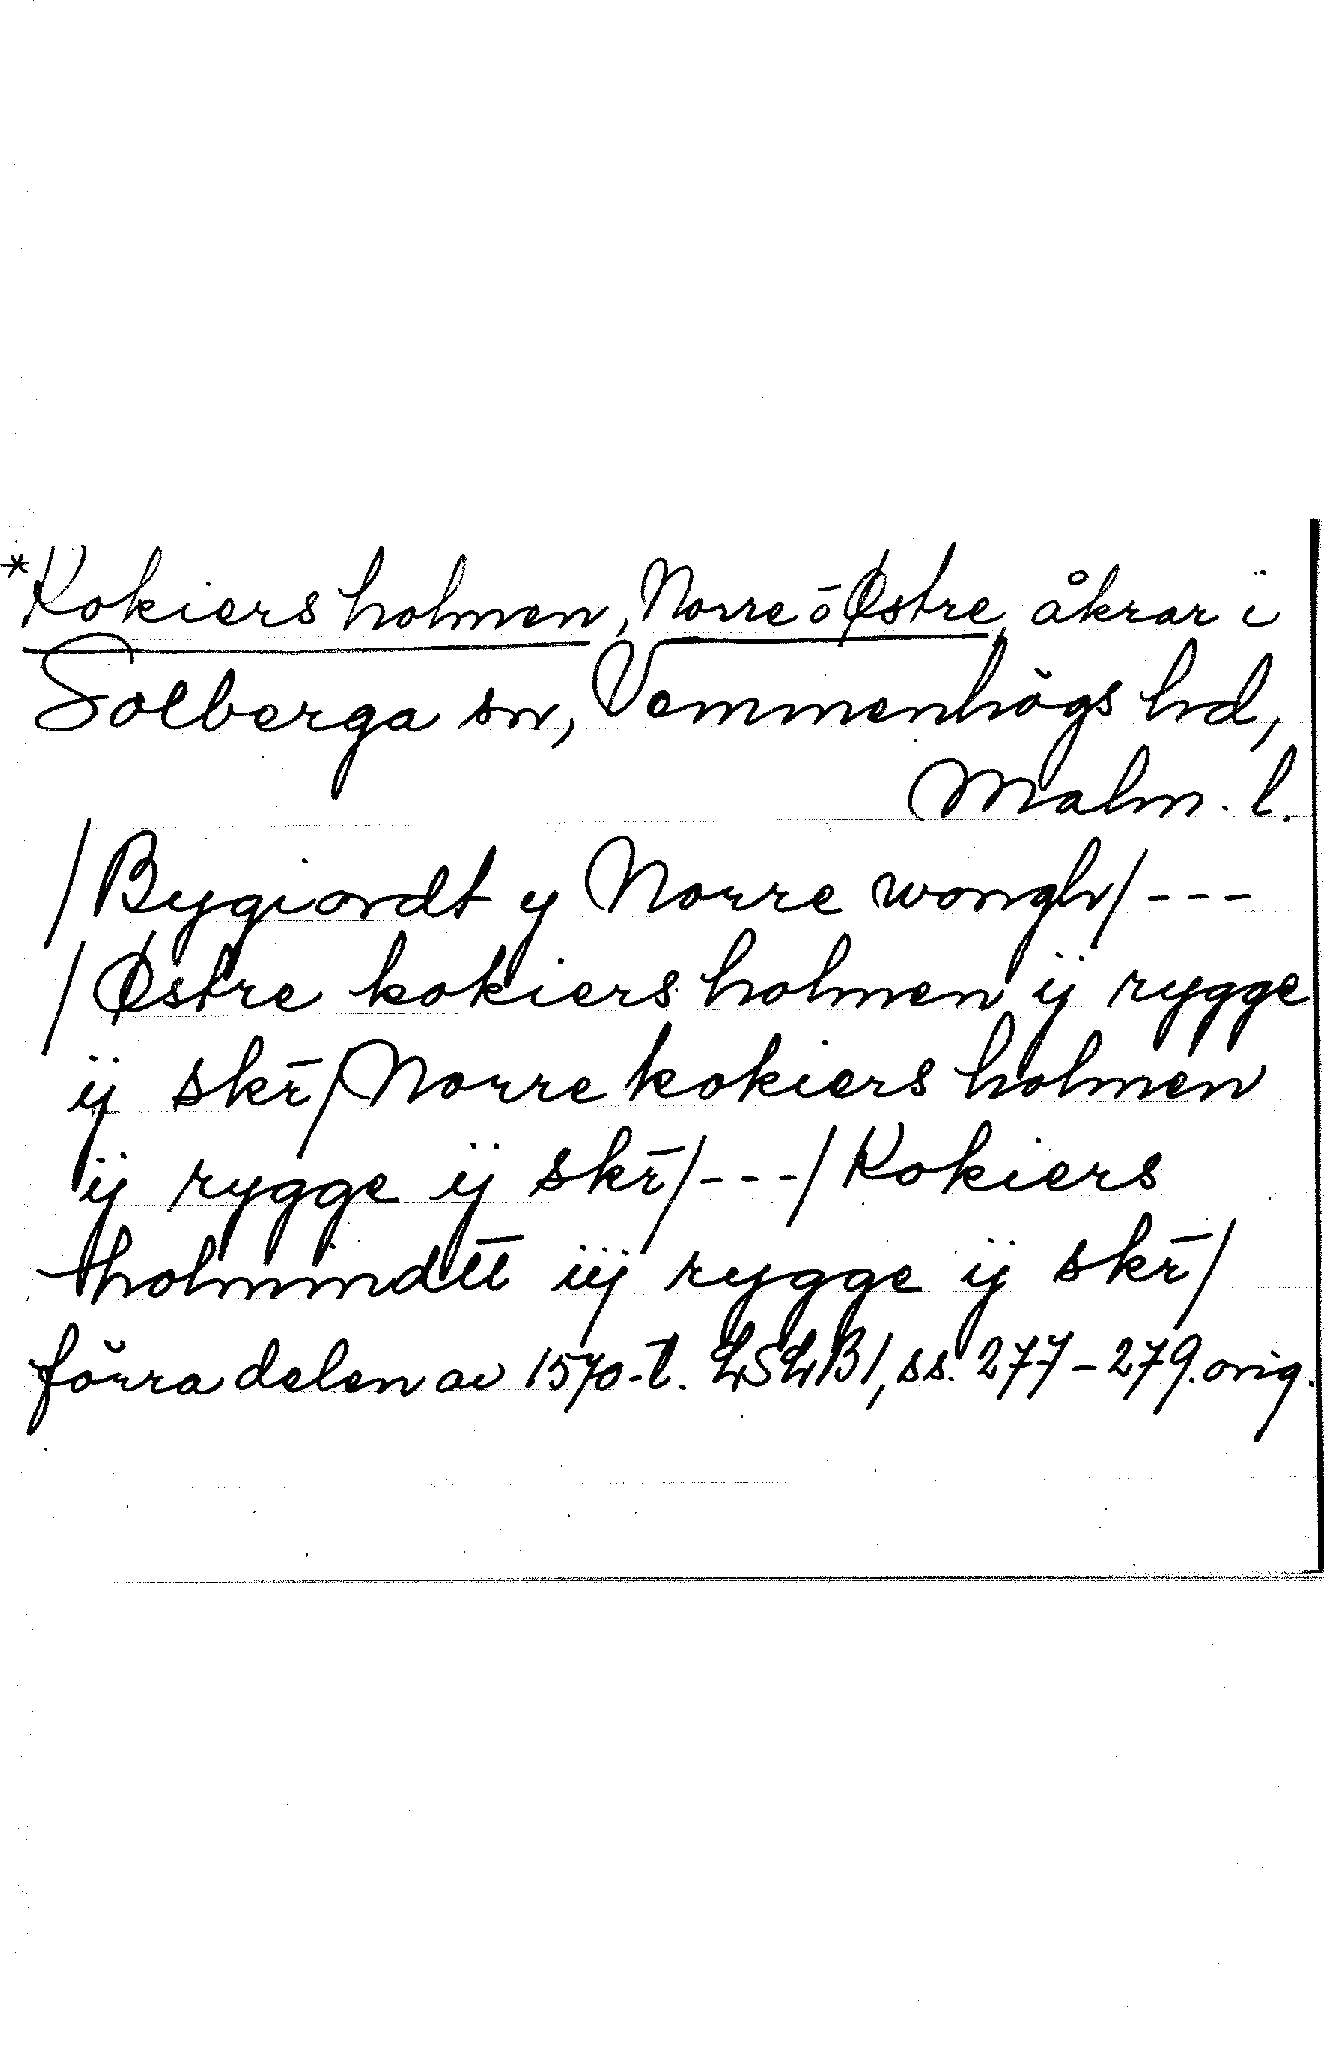 *Kokiers holmen, Norre o Østre, åkrar i
Solberga sn, Vemmenhögs hd,
Malm. l.
/Bygiordt y Norre wongh/---
/Østre kokiers holmen ij rygge
ij skr̄/Norre kokiers holmen
ij rygge ij skr̄/---/Kokiers
holmindtt iij rygge ij skr̄/
förra delen av 1570-t. LSLB1, ss. 277-279. orig.